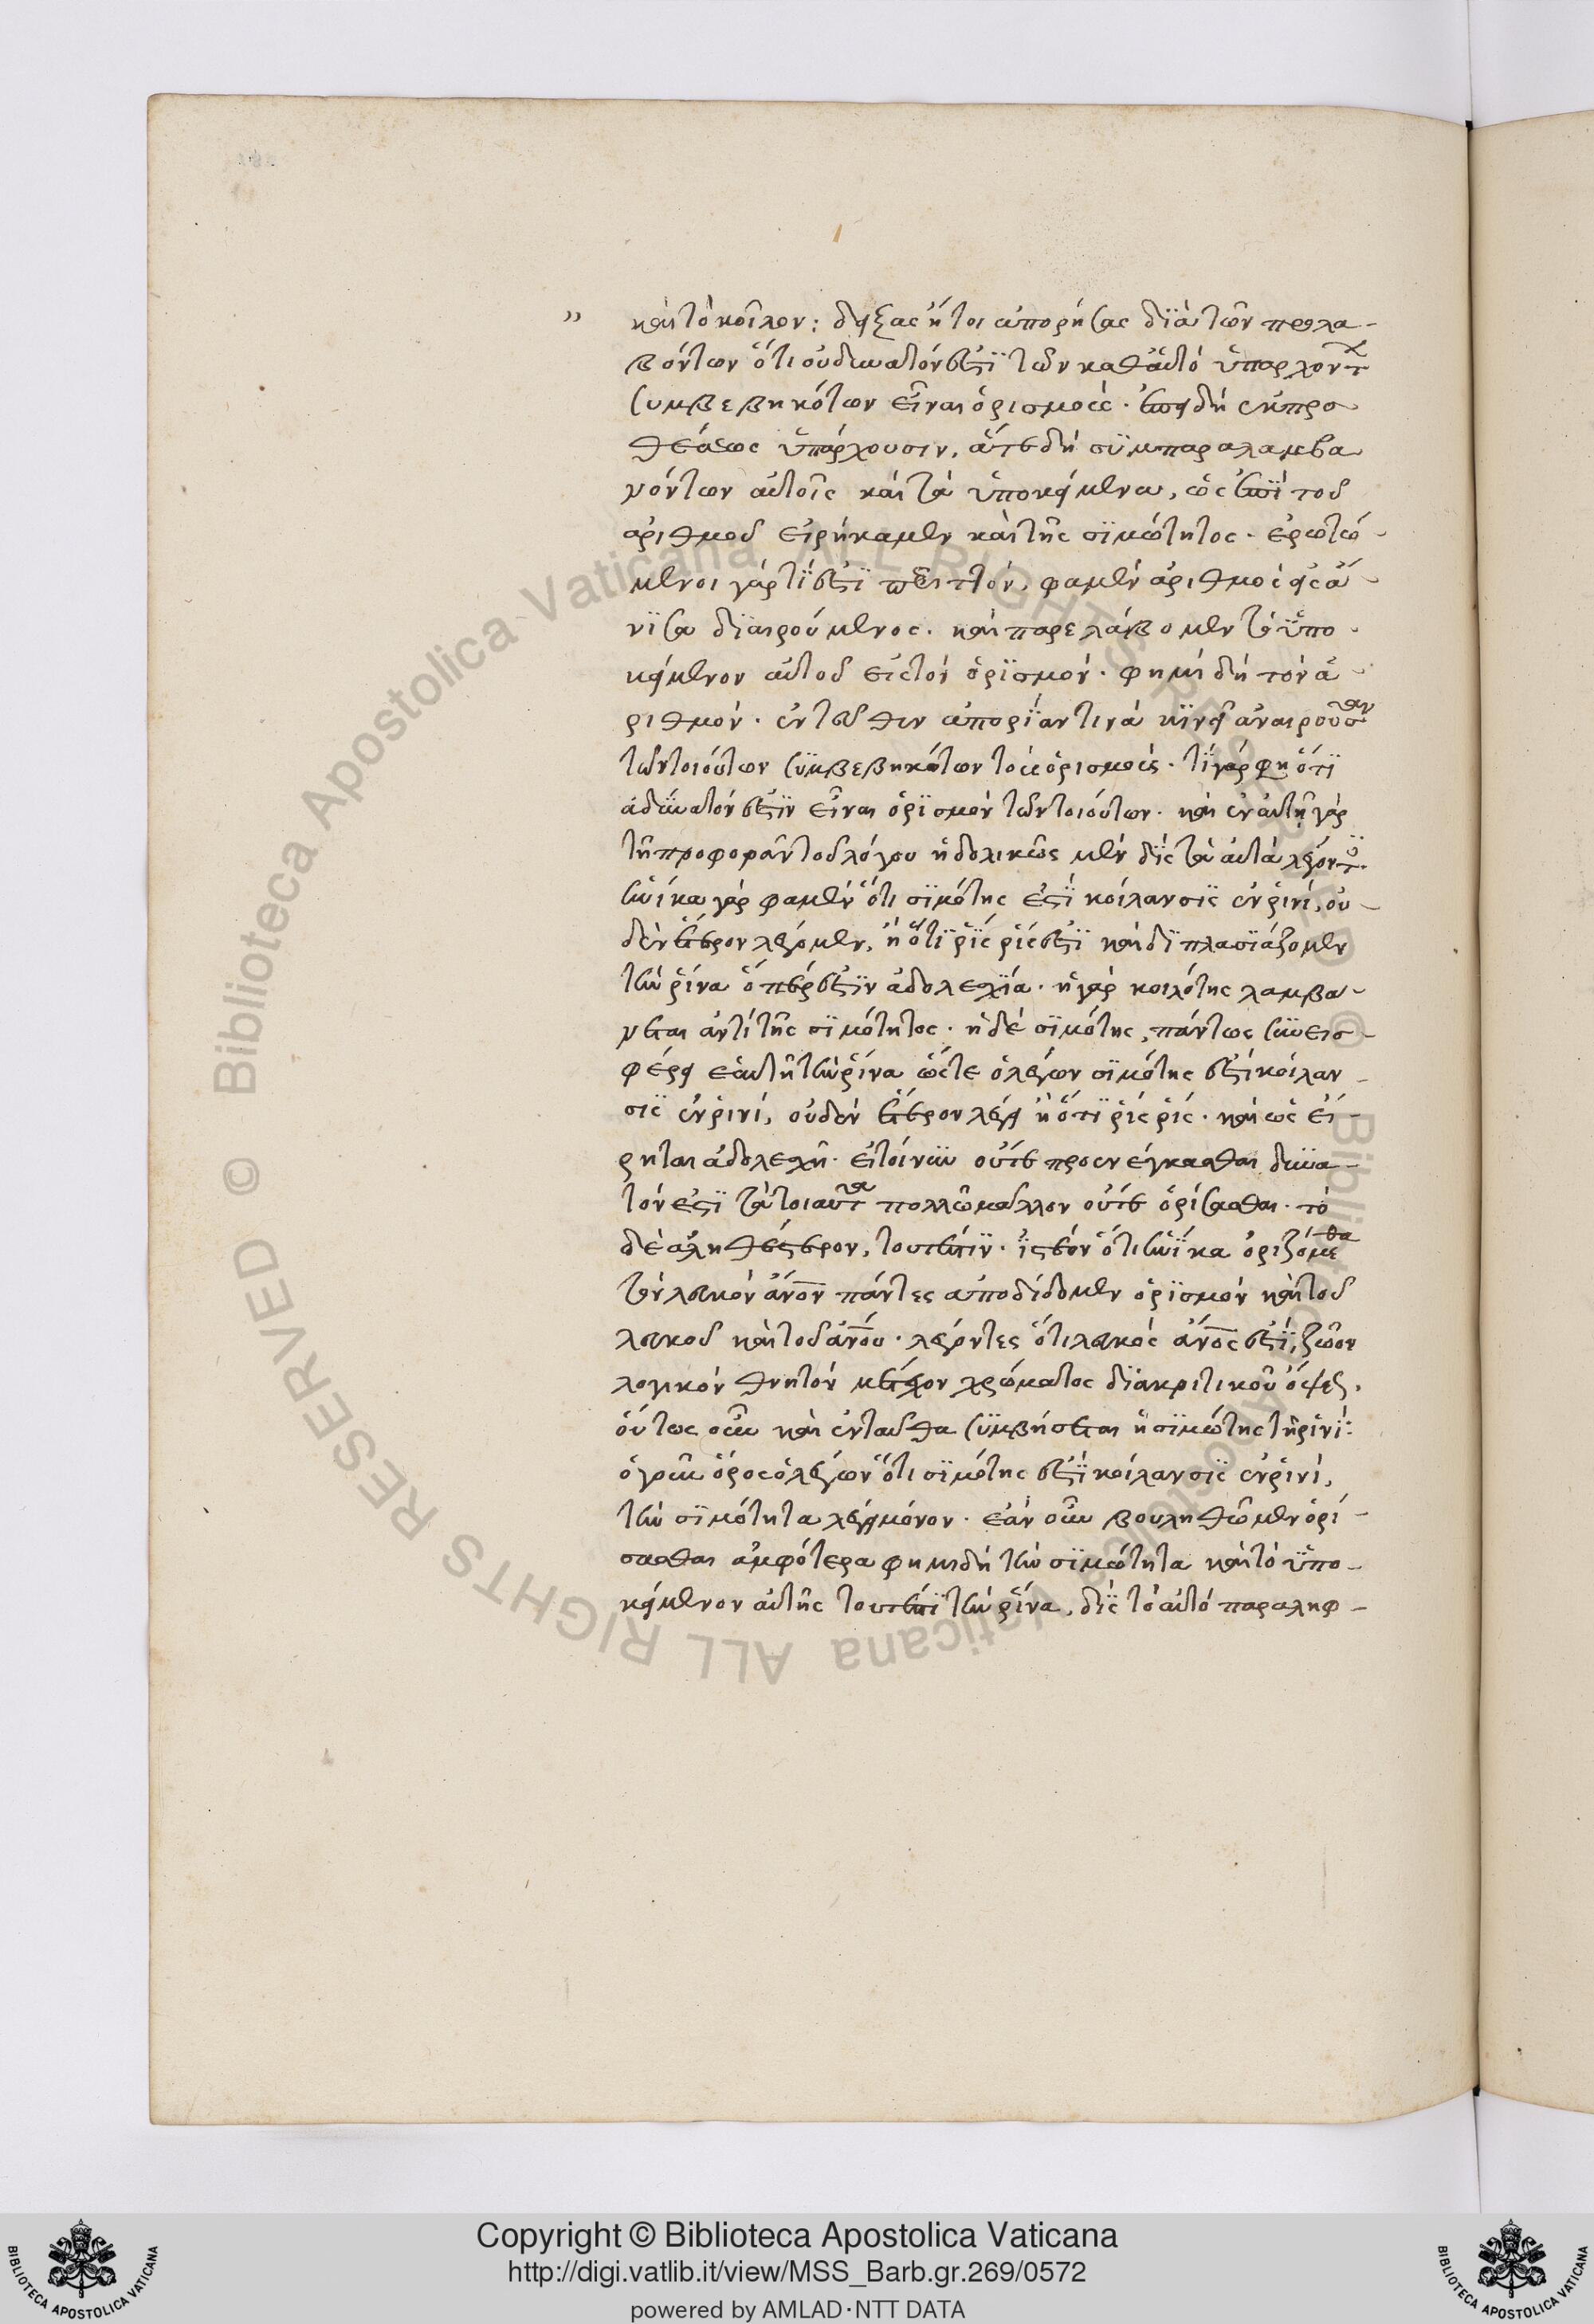 „ καὶ τὸ κοῖλον: δείξας ἤτοι ἀπορήσας διὰ τῶν προλα-
βόντων ὅτι οὐ δυνατόν ἐστϊ τῶν καθ' αὑτὸ ὑπαρχόντων
συμβεβηκότων εἶναι ὁρισμούς. ἐπειδὴ ἐκ προσ
θέσεως ὑπάρχουσιν, ἅτε δὴ σϋμπαραλαμβα
νόντων αὐτοῖς καὶ τὰ ὑποκείμενα, ὡς ἐπὶ τοῦ
ἀριθμοῦ εἰρήκαμεν καὶ τῆς σϊμώτητος. ἐρωτώ-
μενοι γάρ τί ἐστϊ περιττόν, φαμὲν ἀριθμὸς εἰς ἄ-
νϊσα διαιρούμενος. καὶ παρελάβομεν τὸ ὑπο-
κείμενον αὐτοῦ εἰς τὸν ὁρϊσμόν. φημὶ δὴ τὸν ἀ-
ριθμόν. ἐντεῦθεν ἀπορίαν τινὰ κϊνεῖ ἀναιροῦσαν
τῶν τοιούτων συμβεβηκότων τοὺς ὁρισμούς. τί γάρ φη ὅτϊ
ἀδύνατόν ἐστϊν εἶναι ὁρϊσμὸν τῶν τοιούτων. καὶ ἐν αὐτῇ γὰρ
τῇ προφορᾷ τοῦ λόγου ἡδολικῶς μὲν δὶς τὰ αὐτὰ λέγοντες.
ἡνίκα γὰρ φαμὲν ὅτι σϊμότης ἐστϊ κοίλανσϊς ἐν ῥινί, οὐ-
δὲν ἕτερον λέγομεν, ἢ ὅτϊ ῥῒς ῥίς ἐστϊ καὶ δϊπλασϊάζομεν
τὴν ῥίνα ὅπερ ἐστϊν ἀδολεχϊα. ἡ γὰρ κοιλότης λαμβά-
νεται ἀντὶ τῆς σϊμότητος. ἡ δὲ σϊμότης, πάντως συνεισ-
φέρει ἑαυτῇ τὴν ῥίνα ὥστε ὁ λέγων σϊμότης ἐστὶ κοίλαν-
σϊς ἐν ῥινί, οὐδὲν ἕτερον λέγει ἢ ὅτϊ ῥίς ῥίς. καὶ ὡς εἴ-
ρηται ἀδολεχῇ. εἰ τοίνυν οὔτε προενέγκασθαι δυνα-
τόν ἐστϊ τὰ τοιαῦτα πολλῷ μᾶλλον οὔτε ὁρίσασθαι. τὸ
δὲ ἀληθέστερον, τουτέστϊν. ἰστέον ὅτι ἡνίκα ὁριζόμεθα
τὸν λευκὸν ἄνον πάντες ἀποδίδομεν ὁρϊσμὸν καὶ τοῦ
λευκοῦ καὶ τοῦ ἀνου. λέγοντες ὅτι λευκὸς ἄνος ἐστϊ, ζῶον
λογικὸν θνητὸν μετέχον χρώματος διακριτικοῦ ὄψεως.
οὕτως οὖν καὶ ἐνταῦθα συμβήσεται ἡ σϊμώτης τῇ ῥινί:
ὁ γοῦν ὅρος ὁ λέγων ὅτι σϊμότης ἐστϊ κοίλανσϊς ἐν ῥινί,
τὴν σϊμότητα λέγει μόνον. ἐὰν οὖν βουληθῶμεν ὁρί-
σασθαι ἀμφότερα φημὶ δὴ τὴν σϊμώτητα καὶ τὸ ὑπο-
κείμενον αὐτῆς τουτέστϊ τὴν ῥίνα, δὶς τὸ αὐτὸ παραληφ-
Copyright © Biblioteca Apostolica Vaticana
http://digi.vatlib.it/view/MSS_Barb.gr.269/0572
powered by AMLAD·NTT DATA